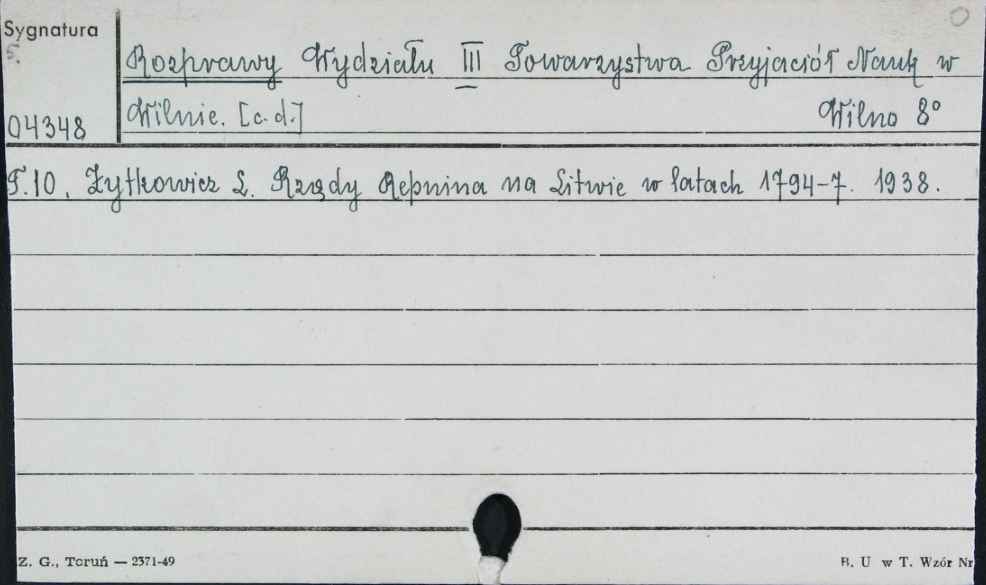 Sygnatura
Rozprawy Wydziału III Towarzystwa Przyjaciół Nauk w
Wilnie. [c.d.] Wilno 8°
04348
T.10. Żytkowicz L. Rządy Repnina na Litwie w latach 1794-7. 1938.
Z. G., Toruń — 2371-49
B. U w T. Wzór Nr